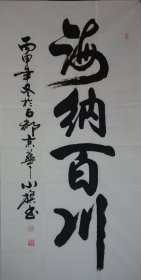 海纳百川
丙申年冬于古都京华小楼书